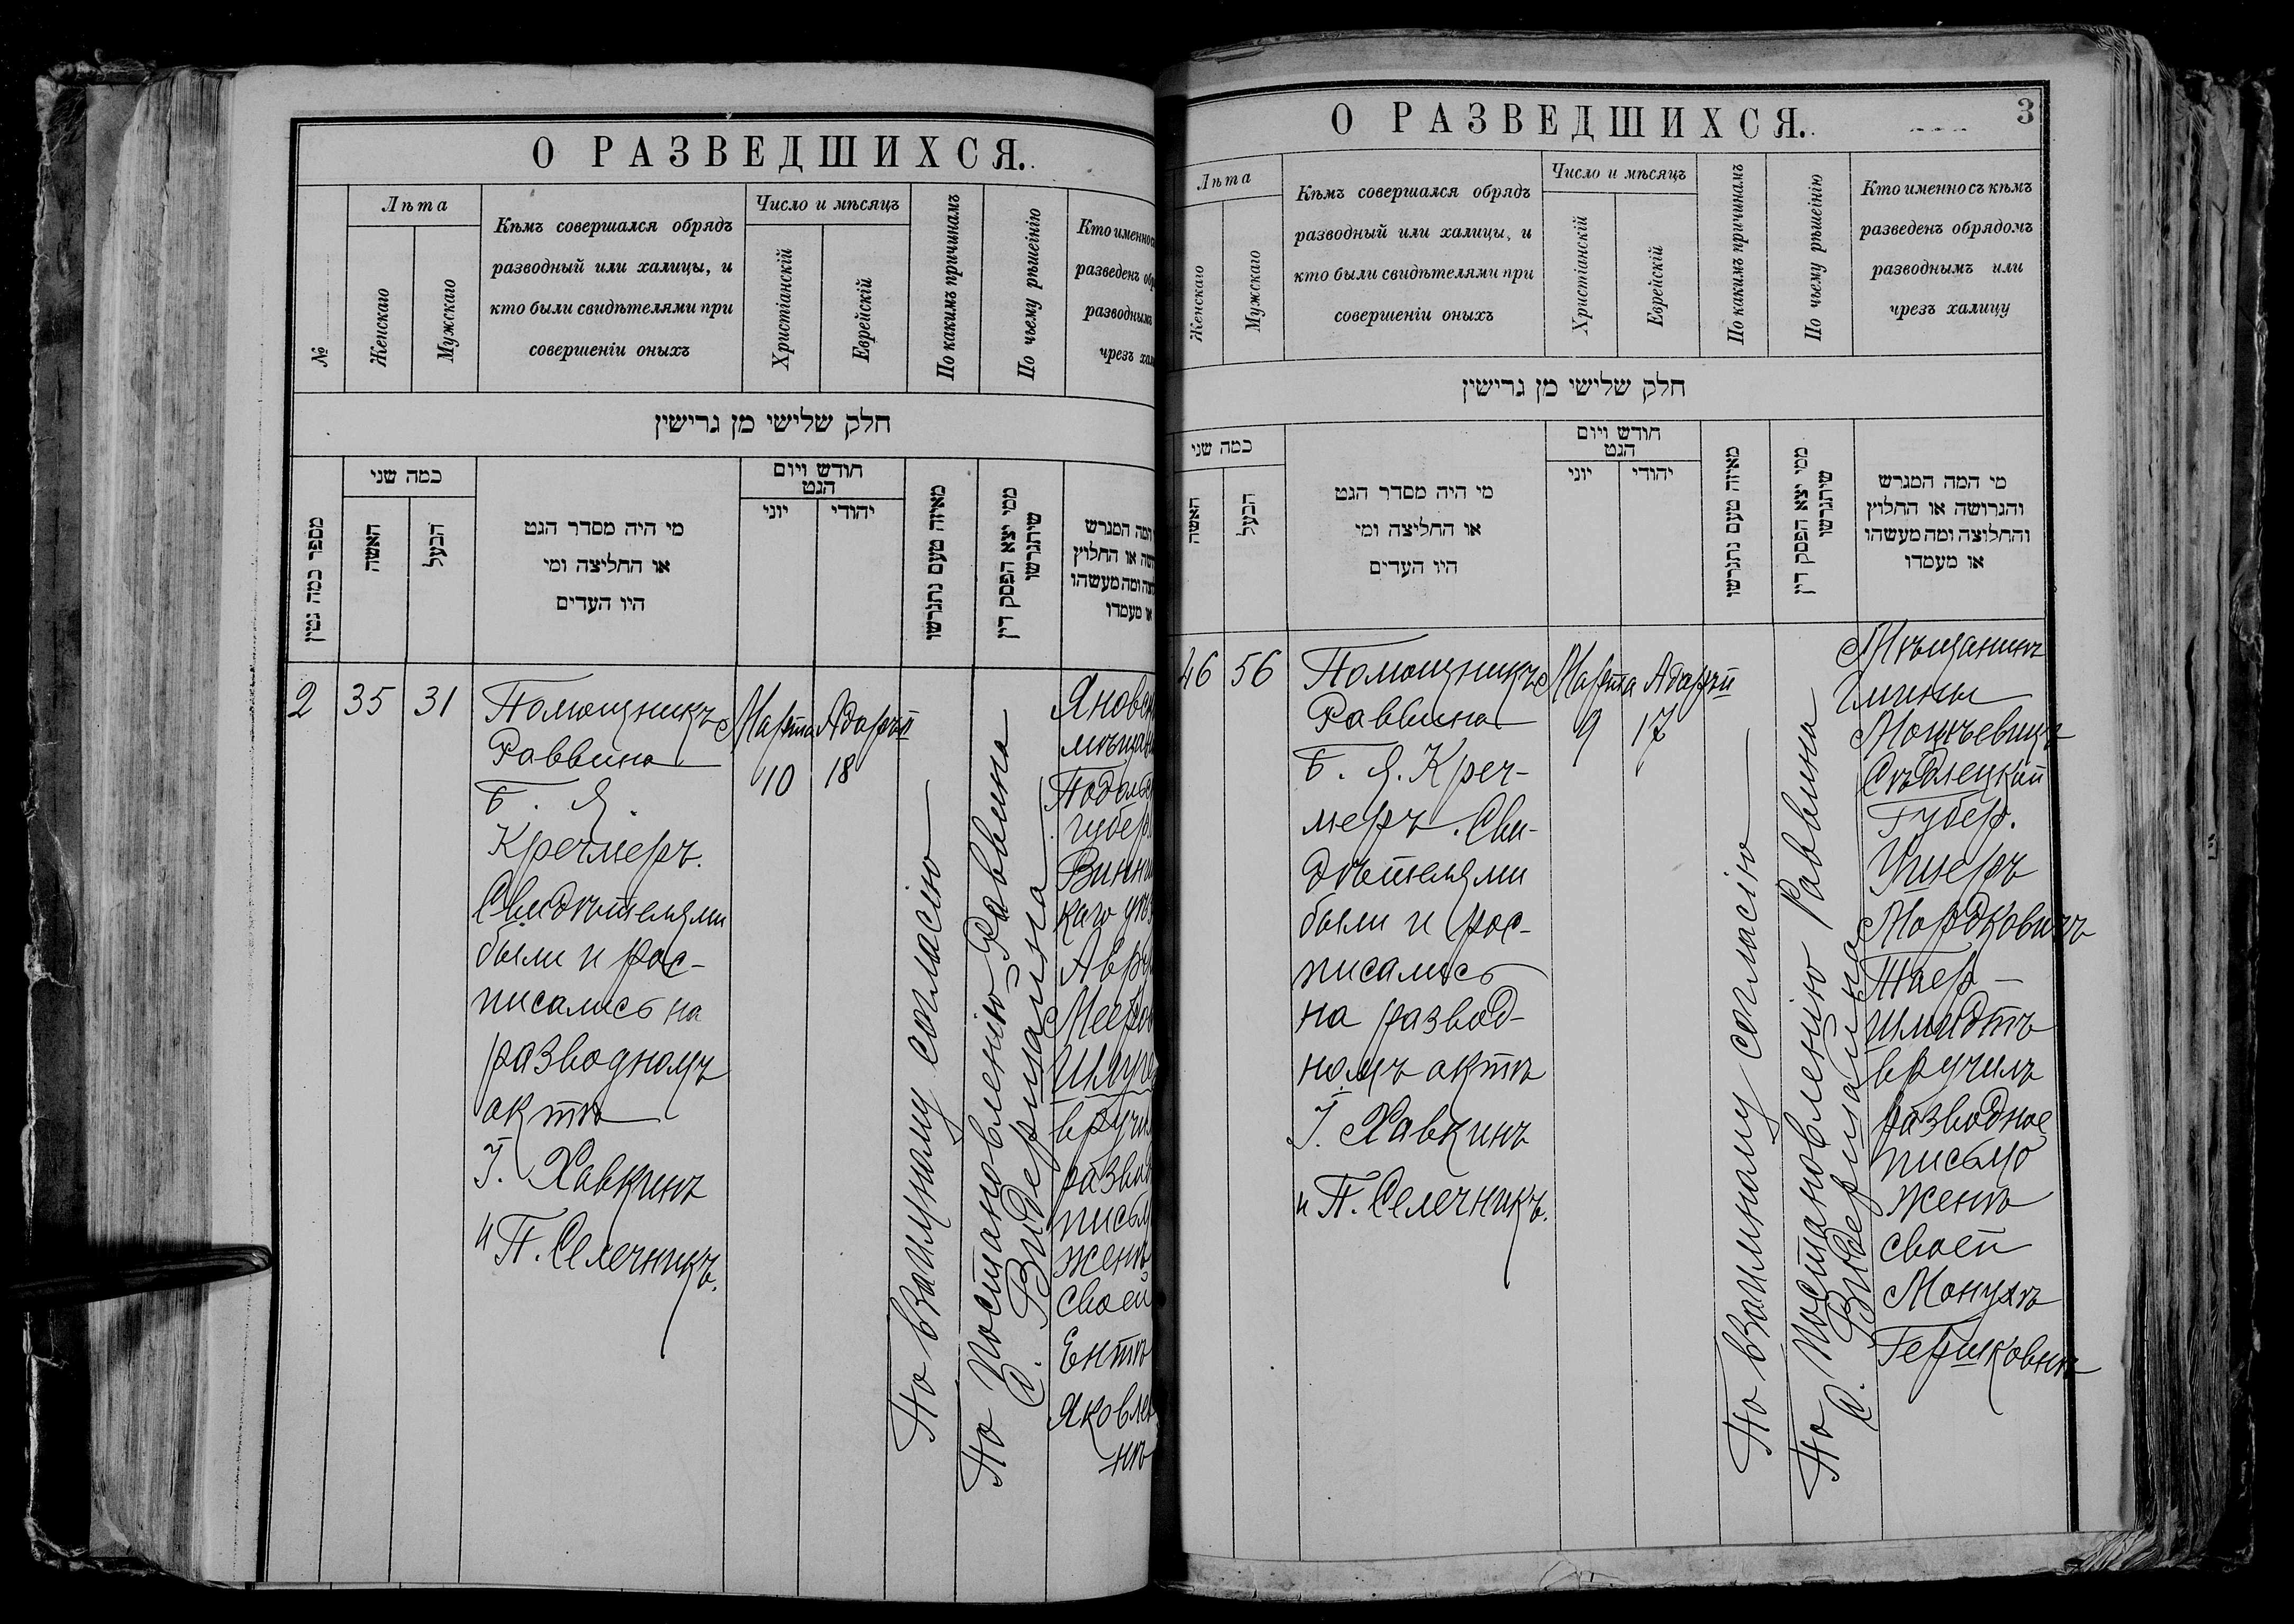 О РАЗВЕДШИХСЯ.
№
Лѣта
Женскаго
Мужскаго
Кѣмъ совершался обрядъ
разводный или халицы, и
кто были свидѣтелями при
совершеніи оныхъ
Число и мѣсяцъ
Христіанскій
Еврейскій
По какимъ причинамъ
По чьему рѣшеінію
Кто именно с
разведенъ обр
разводным
чрезъ хал
חלק שלישי מן גרישין
מספר כמה גטין
כמה שני
האשה
הבעל
מי היה מסדר הגט
או החליצה ומי
היו העדים
חודש ויום
הגט
יוני
יהודי
מאיזה טעם נתגרשו
ממי יצא הפסק דין
שיתגרשו
המה המגרש
או החלוץ
ומה מעשהו
או מעמדו
2
35
31
Помощникъ
Раввина
Б. Я.
Кречмеръ.
Свидѣтелями
были и рос-
писались на
разводномъ
актѣ
І. Хавкинъ
и П. Селечникъ.
Марта
10
Адаръ II
18
По взаимному согласію
По постановленію Раввина
С. Видермана.
Яновск
мѣщан
Подольс
губер
Винни
каго уѣз
Авру
Мееров
Шлуге
вручи
развод
письм
женѣ
своей
Ентѣ
Яковлев
нѣ
О РАЗВЕДШИХСЯ.
3
Лѣта
Женскаго
Мужскаго
Кѣмъ совершался обрядъ
разводный или халицы, и
кто были свидѣтелями при
совершеніи оныхъ
Число и мѣсяцъ
Христіанскій
Еврейскій
По какимъ причинамъ
По чьему рѣшеінію
Кто именно съ кѣмъ
разведенъ обрядомъ
разводнымъ или
чрезъ халицу
חלק שלישי מן גרישין
כמה שני
האשה
הבעל
מי היה מסדר הגט
או החליצה ומי
היו העדים
חודש ויום
הגט
יוני
יהודי
מאיזה טעם נתגרשו
ממי יצא הפסק דין
שיתגרשו
מי המה המגרש
והגרושה או החלוץ
והחלוצה ומה מעשהו
או מעמדו
46
56
Помощникъ
Раввина
Б. Я. Креч-
меръ. Сви-
дѣтелями
были и рос-
писались
на развод-
номъ актѣ
І. Хавкинъ
и П. Селечникъ.
Марта
9
Адаръ II
17
По взаимному согласію
По постановленію Раввина
С. Видермана
Мѣщанинъ
Гмины
Мошѣевицъ
Сѣдлецкой
Губер.
Ушеръ
Мордковичъ
Таер-
шмидтъ
вручилъ
разводное
письмо
женѣ
своей
Монухѣ
Гершковнѣ